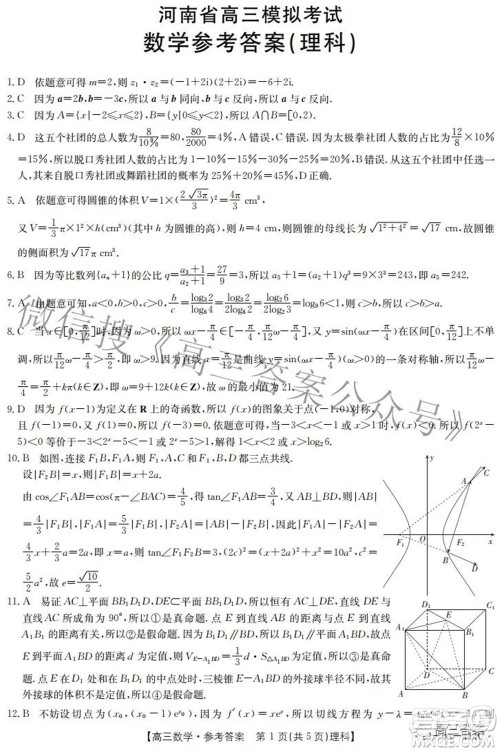 河南省高三模拟考试
数学参考答案(理科)
1. D 依题意可得 m=2,则 z₁·z₂=(−1+2i)(2+2i)=−6+2i.
2. C 因为 a=2b,b=−3c,所以 a 与 b 同向,b 与 c 反向,所以 a 与 c 反向.
3. C 因为 A={x|−2≤x≤2},B={y|0≤y<2},所以 A∩B=[0,2).
4. D 这五个社团的总人数为 8/10%=80, 80/2000=4%,A 错误,C 错误.因为太极拳社团人数的占比为 12/80×100%
=15%,所以脱口秀社团人数的占比为 1−10%−15%−30%−25%=20%,B 错误.从这五个社团中任选一
人,其来自脱口秀社团或舞蹈社团的概率为 25%+20%=45%,D 正确.
5. A 依题意可得圆锥的体积 V=1×(2√3π/3)²=4π/3 cm³,
又 V=1/3π×1²×h(cm³)(其中 h 为圆锥的高),则 h=4 cm,则圆锥的母线长为 √(1²+4²)=√17 cm,故圆锥
的侧面积为 √17π cm².
6. B 因为等比数列{aₙ+1}的公比 q=(a₃+1)/(a₂+1)=27/9=3,所以 a₅+1=(a₂+1)q³=9×3³=243,即 a₅=242.
7. A 由题意可知,a<0,b>0,c>0,
所以 c>b>a.
8. C 当 x∈[0,π/12]时,因为 ω>0,所以 ωx−π/4∈[−π/4,π/12ω−π/4],又 y=sin(ωx−π/4)在区间[0,π/12]上不单
调,所以 π/12ω−π/4>π/2,即 ω>9.因为直线 x=π/12是曲线 y=sin(ωx−π/4)(ω>0)的一条对称轴,所以 π/12ω−
π/4=π/2+kπ(k∈Z),即 ω=9+12k(k∈Z),故 ω 的最小值为 21.
9. D 因为 f(x−1)为定义在 R 上的奇函数,所以 f(x)的图象关于点(−1,0)对称,
且 f(−1)=0,又 f(1)=0,所以 f(−3)=0.依题意可得,当−3<x<−1 或 x>1 时,f(x)<0.所以 f(2ˣ−
5)<0 等价于−3<2ˣ−5<−1 或 2ˣ−5>1,解得 1<x<2 或 x>log₂6.
10. B 如图,连接 F₁B,F₁A,则 F₁,A,C 和 F₁,B,D 都三点共线.
设|F₂B|=x,则|F₁B|=x+2a.
由 cos∠F₁AB=cos(π−∠BAC)=4/5,得 tan∠F₁AB=3/4,又 AB⊥BD,则|AB|=
4/3|F₁B|,|F₁A|=5/3|F₁B|,又|F₂A|=|AB|−|F₂B|,因此|F₁A|−|F₂A|=
4/3x+2/3a=2a,即 x=a,则 tan∠F₁F₂B=3,(2c)²=(x+2a)²+x²=10a²,c²=
5/2a²,故 e=√10/2.
11. A 易证 AC⊥平面 BB₁D₁D,DE⊂平面 BB₁D₁D,所以恒有 AC⊥DE,直线 DE 与
直线 AC 所成角为 90°,所以①是真命题.点 E 到直线 AB 的距离与点 E 到直线
A₁B₁ 的距离有关,所以②是假命题.因为 B₁D₁∥BD,所以 B₁D₁∥平面 A₁BD,故点
E 到平面 A₁BD 的距离 d 为定值,则 V_E−A₁BD=1/3d·S△A₁BD 为定值,所以③是真命
题.点 E 在 D₁ 处和在 B₁D₁ 的中点处时,三棱锥 E−A₁BD 的外接球不一样,故其
外接球的体积不是定值,所以④是假命题.
12. B 不妨设切点为(x₀,(x₀−1)e^x₀),因为 f′(x)=xeˣ,所以切线方程为
【高三数学·参考答案 第 1 页(共 5 页)理科】
微信搜《高三答案公众号》